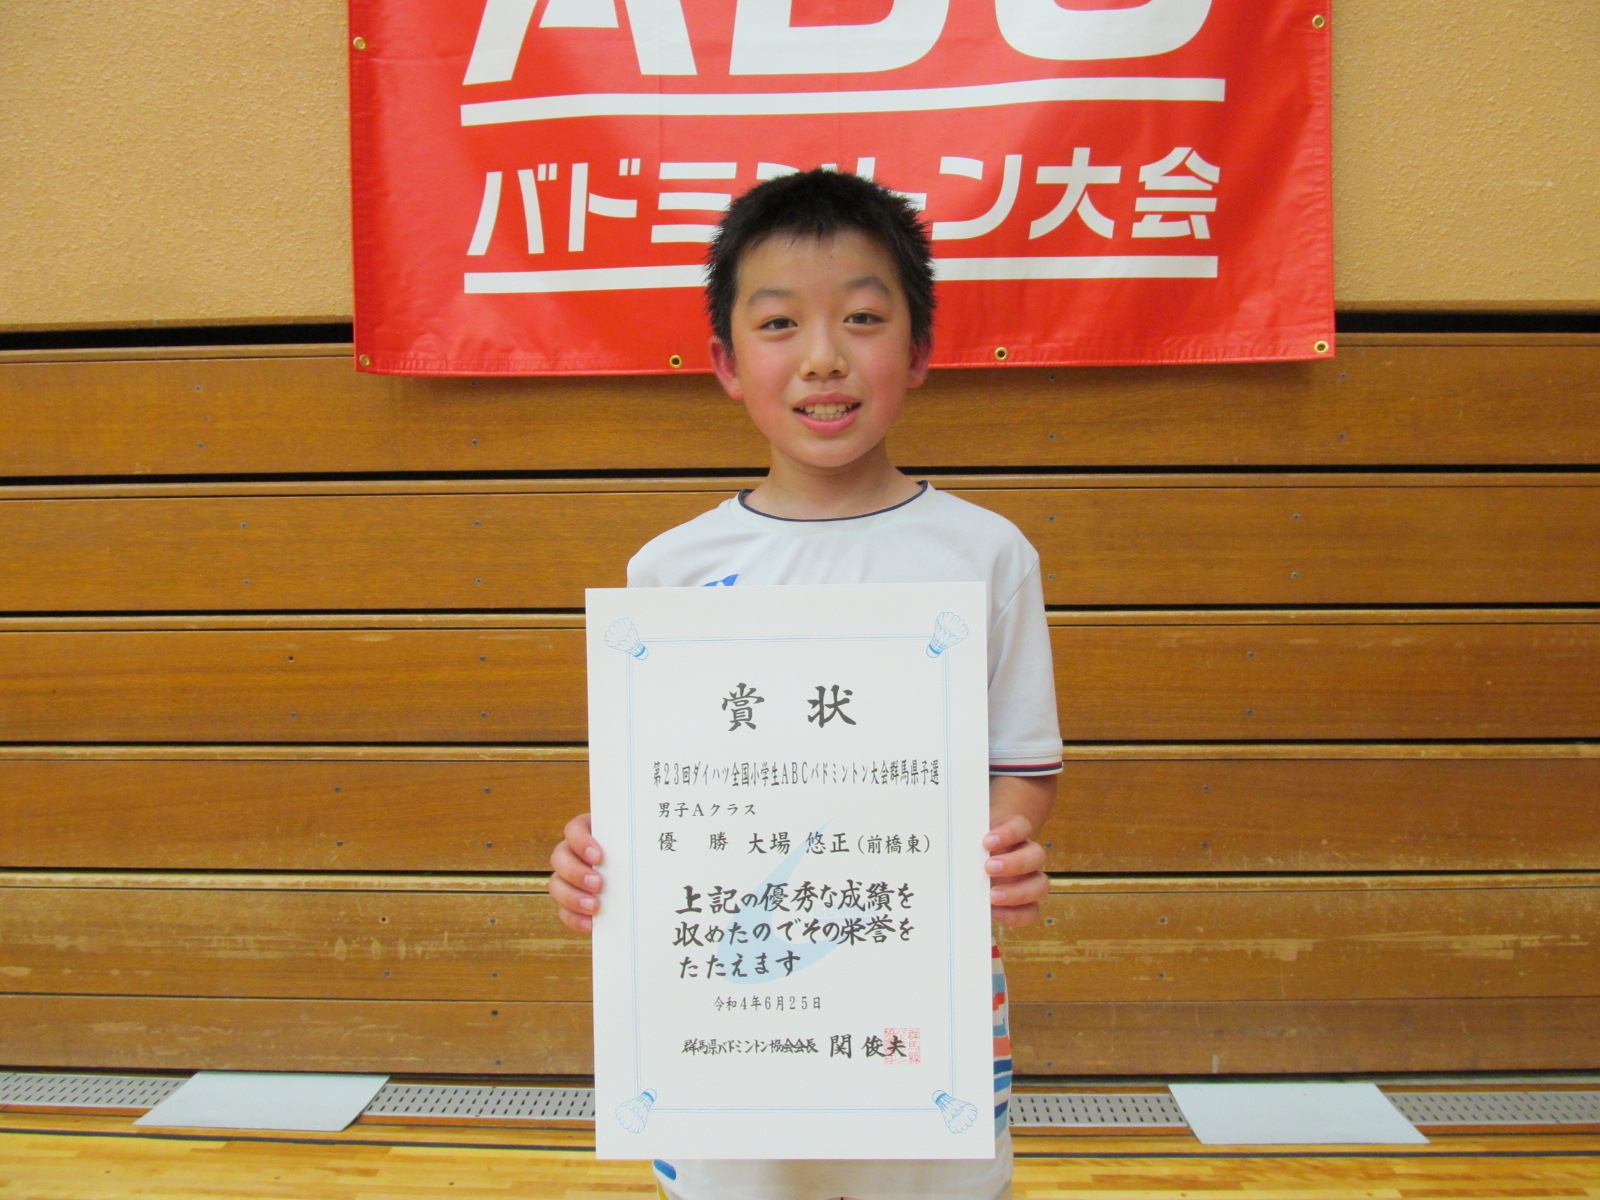 ABC
バドミントン大会
賞状
第23回ダイハツ全国小学生ABCバドミントン大会群馬県予選
男子Aクラス
優勝 大場 悠正(前橋東)
上記の優秀な成績を
収めたのでその栄誉を
たたえます
令和4年6月25日
群馬県バドミントン協会会長 関 俊夫